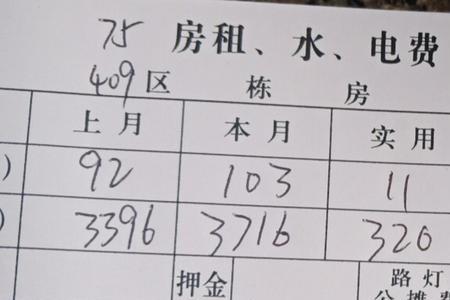 75 房租、水、电费
409区 栋 房
上月 本月 实用
) 92 103 11
) 3396 3716 320
押金 路灯
公摊费